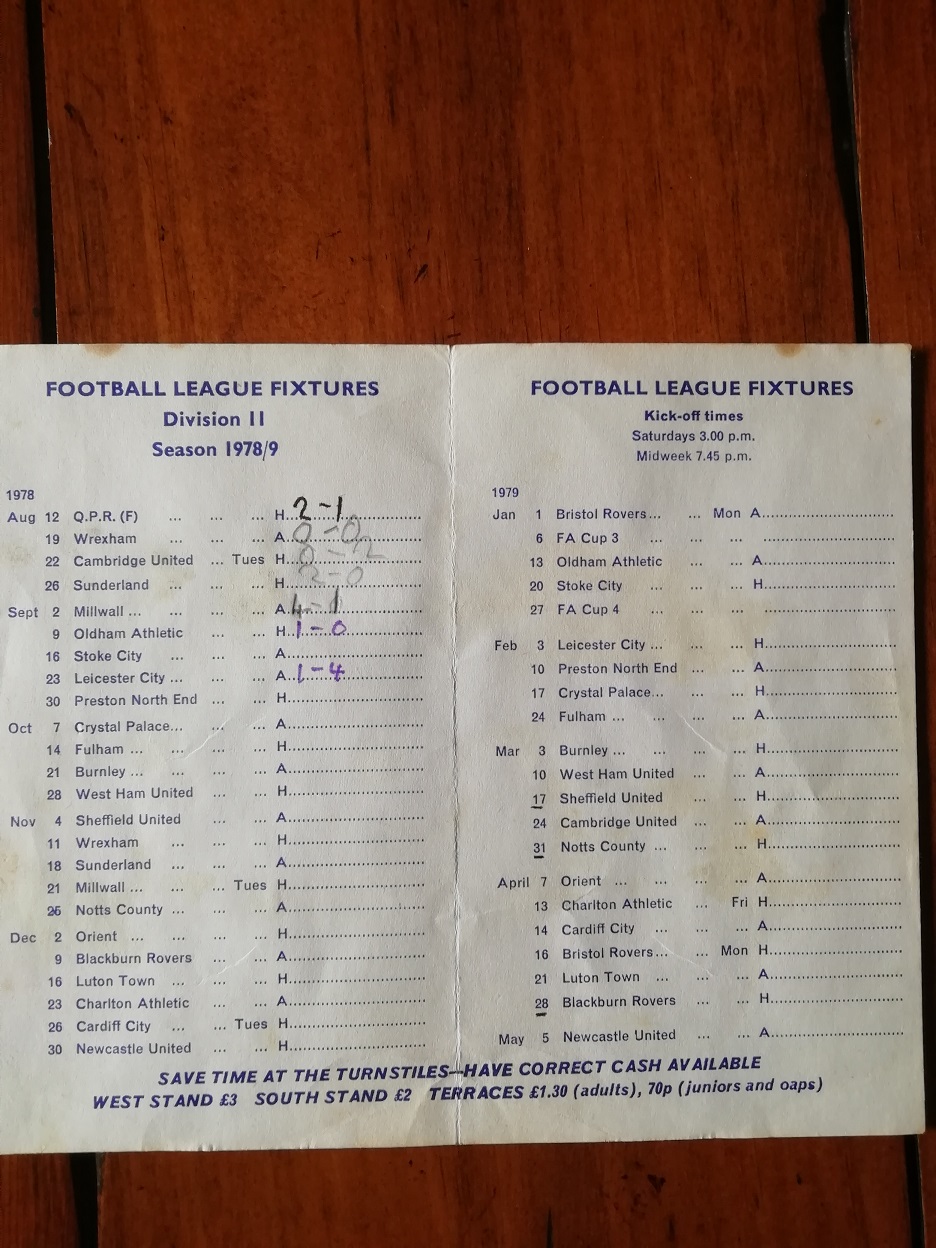 FOOTBALL LEAGUE FIXTURES
Division II
Season 1978/9
1978
Aug 12 Q.P.R. (F) ... ... ... H...2-1...
19 Wrexham ... ... ... A...0-0...
22 Cambridge United ... Tues H...0-2...
26 Sunderland ... ... ... H...2-0...
Sept 2 Millwall ... ... ... A...4-1...
9 Oldham Athletic ... ... H...1-0...
16 Stoke City ... ... ... A...
23 Leicester City ... ... ... A...1-4...
30 Preston North End ... ... H...
Oct 7 Crystal Palace... ... ... A...
14 Fulham ... ... ... ... H...
21 Burnley ... ... ... ... A...
28 West Ham United ... ... H...
Nov 4 Sheffield United ... ... A...
11 Wrexham ... ... ... H...
18 Sunderland ... ... ... A...
21 Millwall ... ... Tues H...
25 Notts County ... ... ... A...
Dec 2 Orient ... ... ... ... H...
9 Blackburn Rovers ... ... A...
16 Luton Town ... ... ... H...
23 Charlton Athletic ... ... A...
26 Cardiff City ... ... Tues H...
30 Newcastle United ... ... H...
FOOTBALL LEAGUE FIXTURES
Kick-off times
Saturdays 3.00 p.m.
Midweek 7.45 p.m.
1979
Jan 1 Bristol Rovers... ... Mon A...
6 FA Cup 3 ... ... ... ...
13 Oldham Athletic ... ... A...
20 Stoke City ... ... ... H...
27 FA Cup 4 ... ... ...
Feb 3 Leicester City ... ... ... H...
10 Preston North End ... ... A...
17 Crystal Palace... ... ... H...
24 Fulham ... ... ... ... A...
Mar 3 Burnley ... ... ... ... H...
10 West Ham United ... ... A...
17 Sheffield United ... ... H...
24 Cambridge United ... ... A...
31 Notts County ... ... ... H...
April 7 Orient ... ... ... ... A...
13 Charlton Athletic ... Fri H...
14 Cardiff City ... ... ... A...
16 Bristol Rovers... ... Mon H...
21 Luton Town ... ... ... A...
28 Blackburn Rovers ... ... H...
May 5 Newcastle United ... ... A...
SAVE TIME AT THE TURNSTILES—HAVE CORRECT CASH AVAILABLE
WEST STAND £3 SOUTH STAND £2 TERRACES £1.30 (adults), 70p (juniors and oaps)